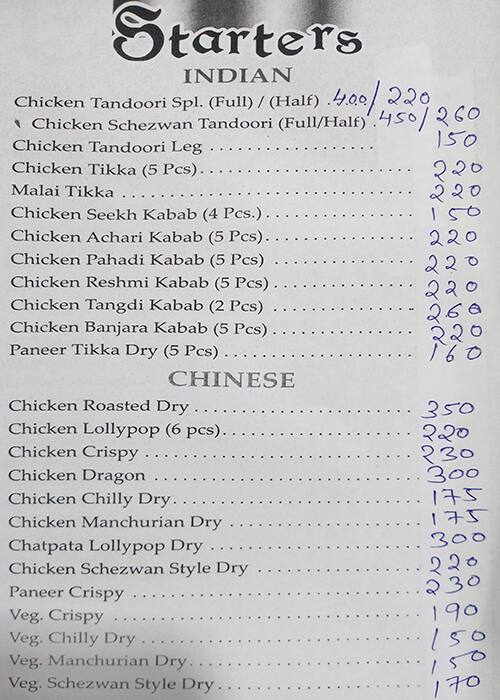 Starters
INDIAN
Chicken Tandoori Spl. (Full) / (Half) .400/220
Chicken Schezwan Tandoori (Full/Half) .450/260
Chicken Tandoori Leg .................. 150
Chicken Tikka (5 Pcs).................. 220
Malai Tikka .................. 220
Chicken Seekh Kabab (4 Pcs.).................. 150
Chicken Achari Kabab (5 Pcs).................. 220
Chicken Pahadi Kabab (5 Pcs) .................. 220
Chicken Reshmi Kabab (5 Pcs).................. 220
Chicken Tangdi Kabab (2 Pcs) .................. 260
Chicken Banjara Kabab (5 Pcs) .................. 220
Paneer Tikka Dry (5 Pcs) .................. 160
CHINESE
Chicken Roasted Dry .................. 350
Chicken Lollypop (6 pcs).................. 220
Chicken Crispy .................. 230
Chicken Dragon .................. 300
Chicken Chilly Dry.................. 175
Chicken Manchurian Dry .................. 175
Chatpata Lollypop Dry .................. 300
Chicken Schezwan Style Dry .................. 220
Paneer Crispy .................. 230
Veg. Crispy .................. 190
Veg. Chilly Dry .................. 150
Veg. Manchurian Dry.................. 150
Veg. Schezwan Style Dry.................. 170